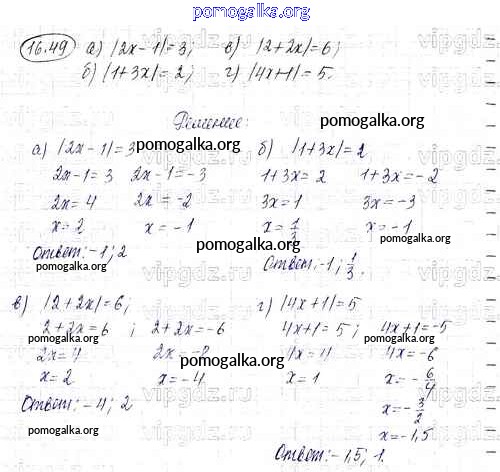 pomogalka.org
16.49 а) |2x-1|=3; в) |2+2x|=6;
б) |1+3x|=2; г) |4x+1|=5.
Решение:
pomogalka.org
а) |2x-1|=3 б) |1+3x|=2
pomogalka.org
2x-1=3 2x-1=-3 1+3x=2 1+3x=-2
2x=4 2x=-2 3x=1 3x=-3
x=2 x=-1 x=1/3 x=-1
pomogalka.org
Ответ: -1; 2 Ответ: -1; 1/3.
pomogalka.org
в) |2+2x|=6; г) |4x+1|=5
pomogalka.org
2+2x=6 ; 2+2x=-6 4x+1=5 ; 4x+1=-5
2x=4 2x=-8 4x=4 4x=-6
pomogalka.org
x=2 x=-4 x=1 x=-6/4
Ответ: -4; 2 x=-3/2
pomogalka.org
x=-1,5
Ответ: -1,5; 1.
pomogalka.org